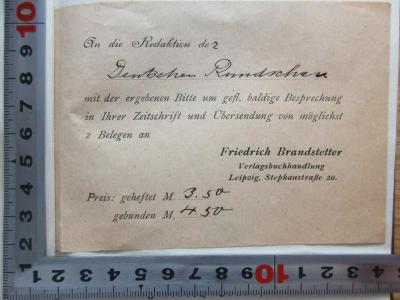 An die Redaktion der
Deutschen Rundschau
mit der ergebenen Bitte um gefl. baldige Besprechung
in Ihrer Zeitschrift und Übersendung von möglichst
2 Belegen an
Friedrich Brandstetter
Verlagsbuchhandlung
Leipzig, Stephanstraße 20.
Preis: geheftet M. 3.50
gebunden M. 4.50
10
9
8
7
6
5
4
3
2
1
3 2 1 9 8 7 6 5 4 3 2 1 10 9 8 7 6 5 4 3 2 1